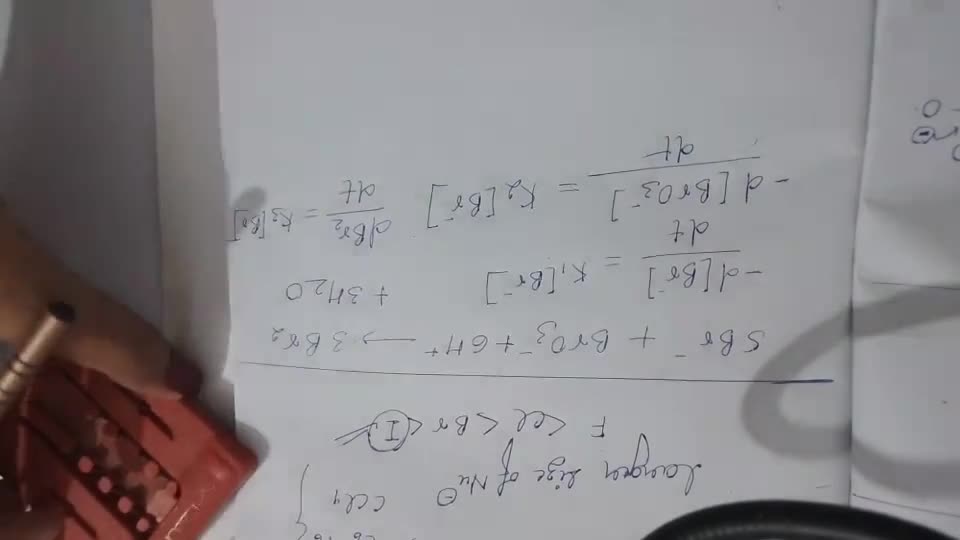 CCl4
Larger size of Nu⊖
F < Cl < Br < I
5Br⁻ + BrO3⁻ + 6H⁺ → 3Br2
+ 3H2O
-d[Br⁻]/dt = K1[Br⁻]
-d[BrO3⁻]/dt = K2[Br⁻] dBr2/dt = K3[Br⁻]